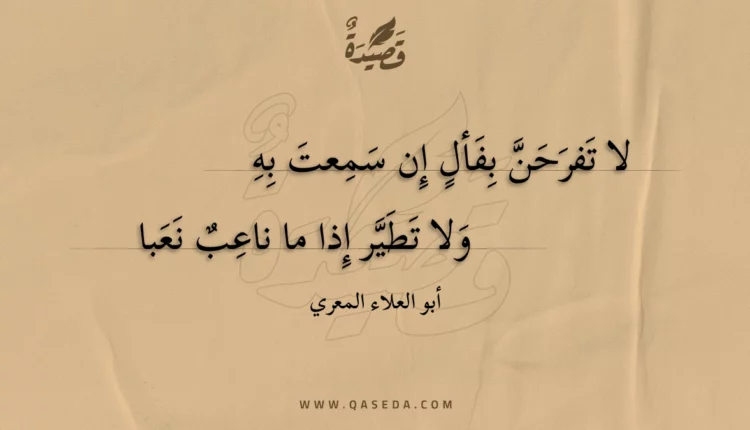 قَصِيدَةٌ
لا تَفرَحَنَّ بِفَألٍ إِن سَمِعتَ بِهِ
وَلا تَطَيَّر إِذا ما ناعِبٌ نَعَبا
أبو العلاء المعري
WWW.QASEDA.COM